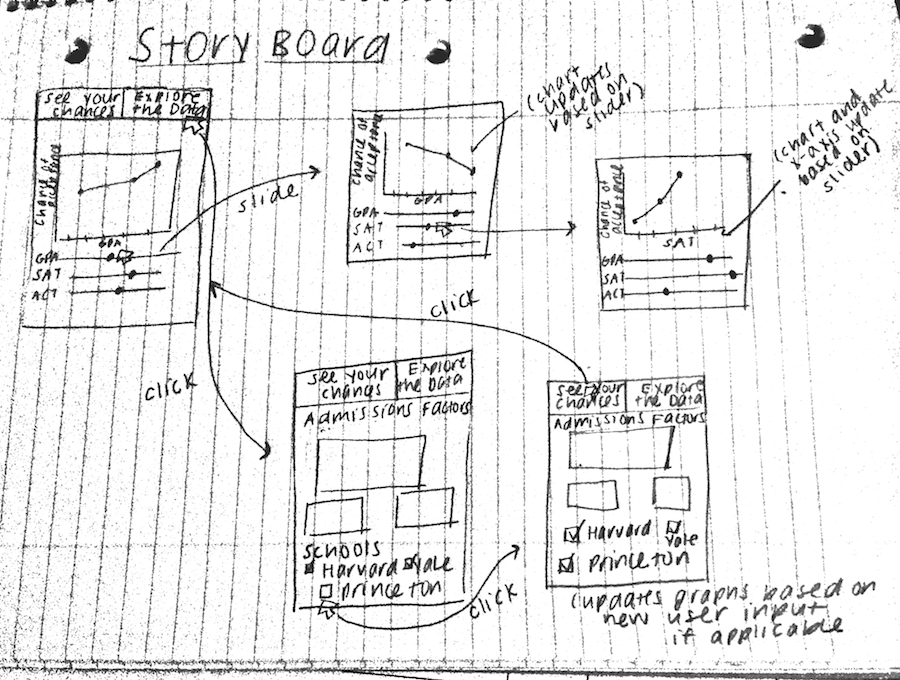 Story Board
See your chances
Explore the Data
Chance of acceptance
GPA
GPA
SAT
ACT
slide
Chance of acceptance
GPA
GPA
SAT
ACT
(chart updates based on slider)
Chance of acceptance
SAT
GPA
SAT
ACT
(chart and x-axis update based on slider)
click
click
See your chances
Explore the Data
Admissions Factors
Schools
Harvard Yale
Princeton
click
See your chances
Explore the Data
Admissions Factors
Harvard Yale
Princeton
(updates graphs based on
new user input
if applicable